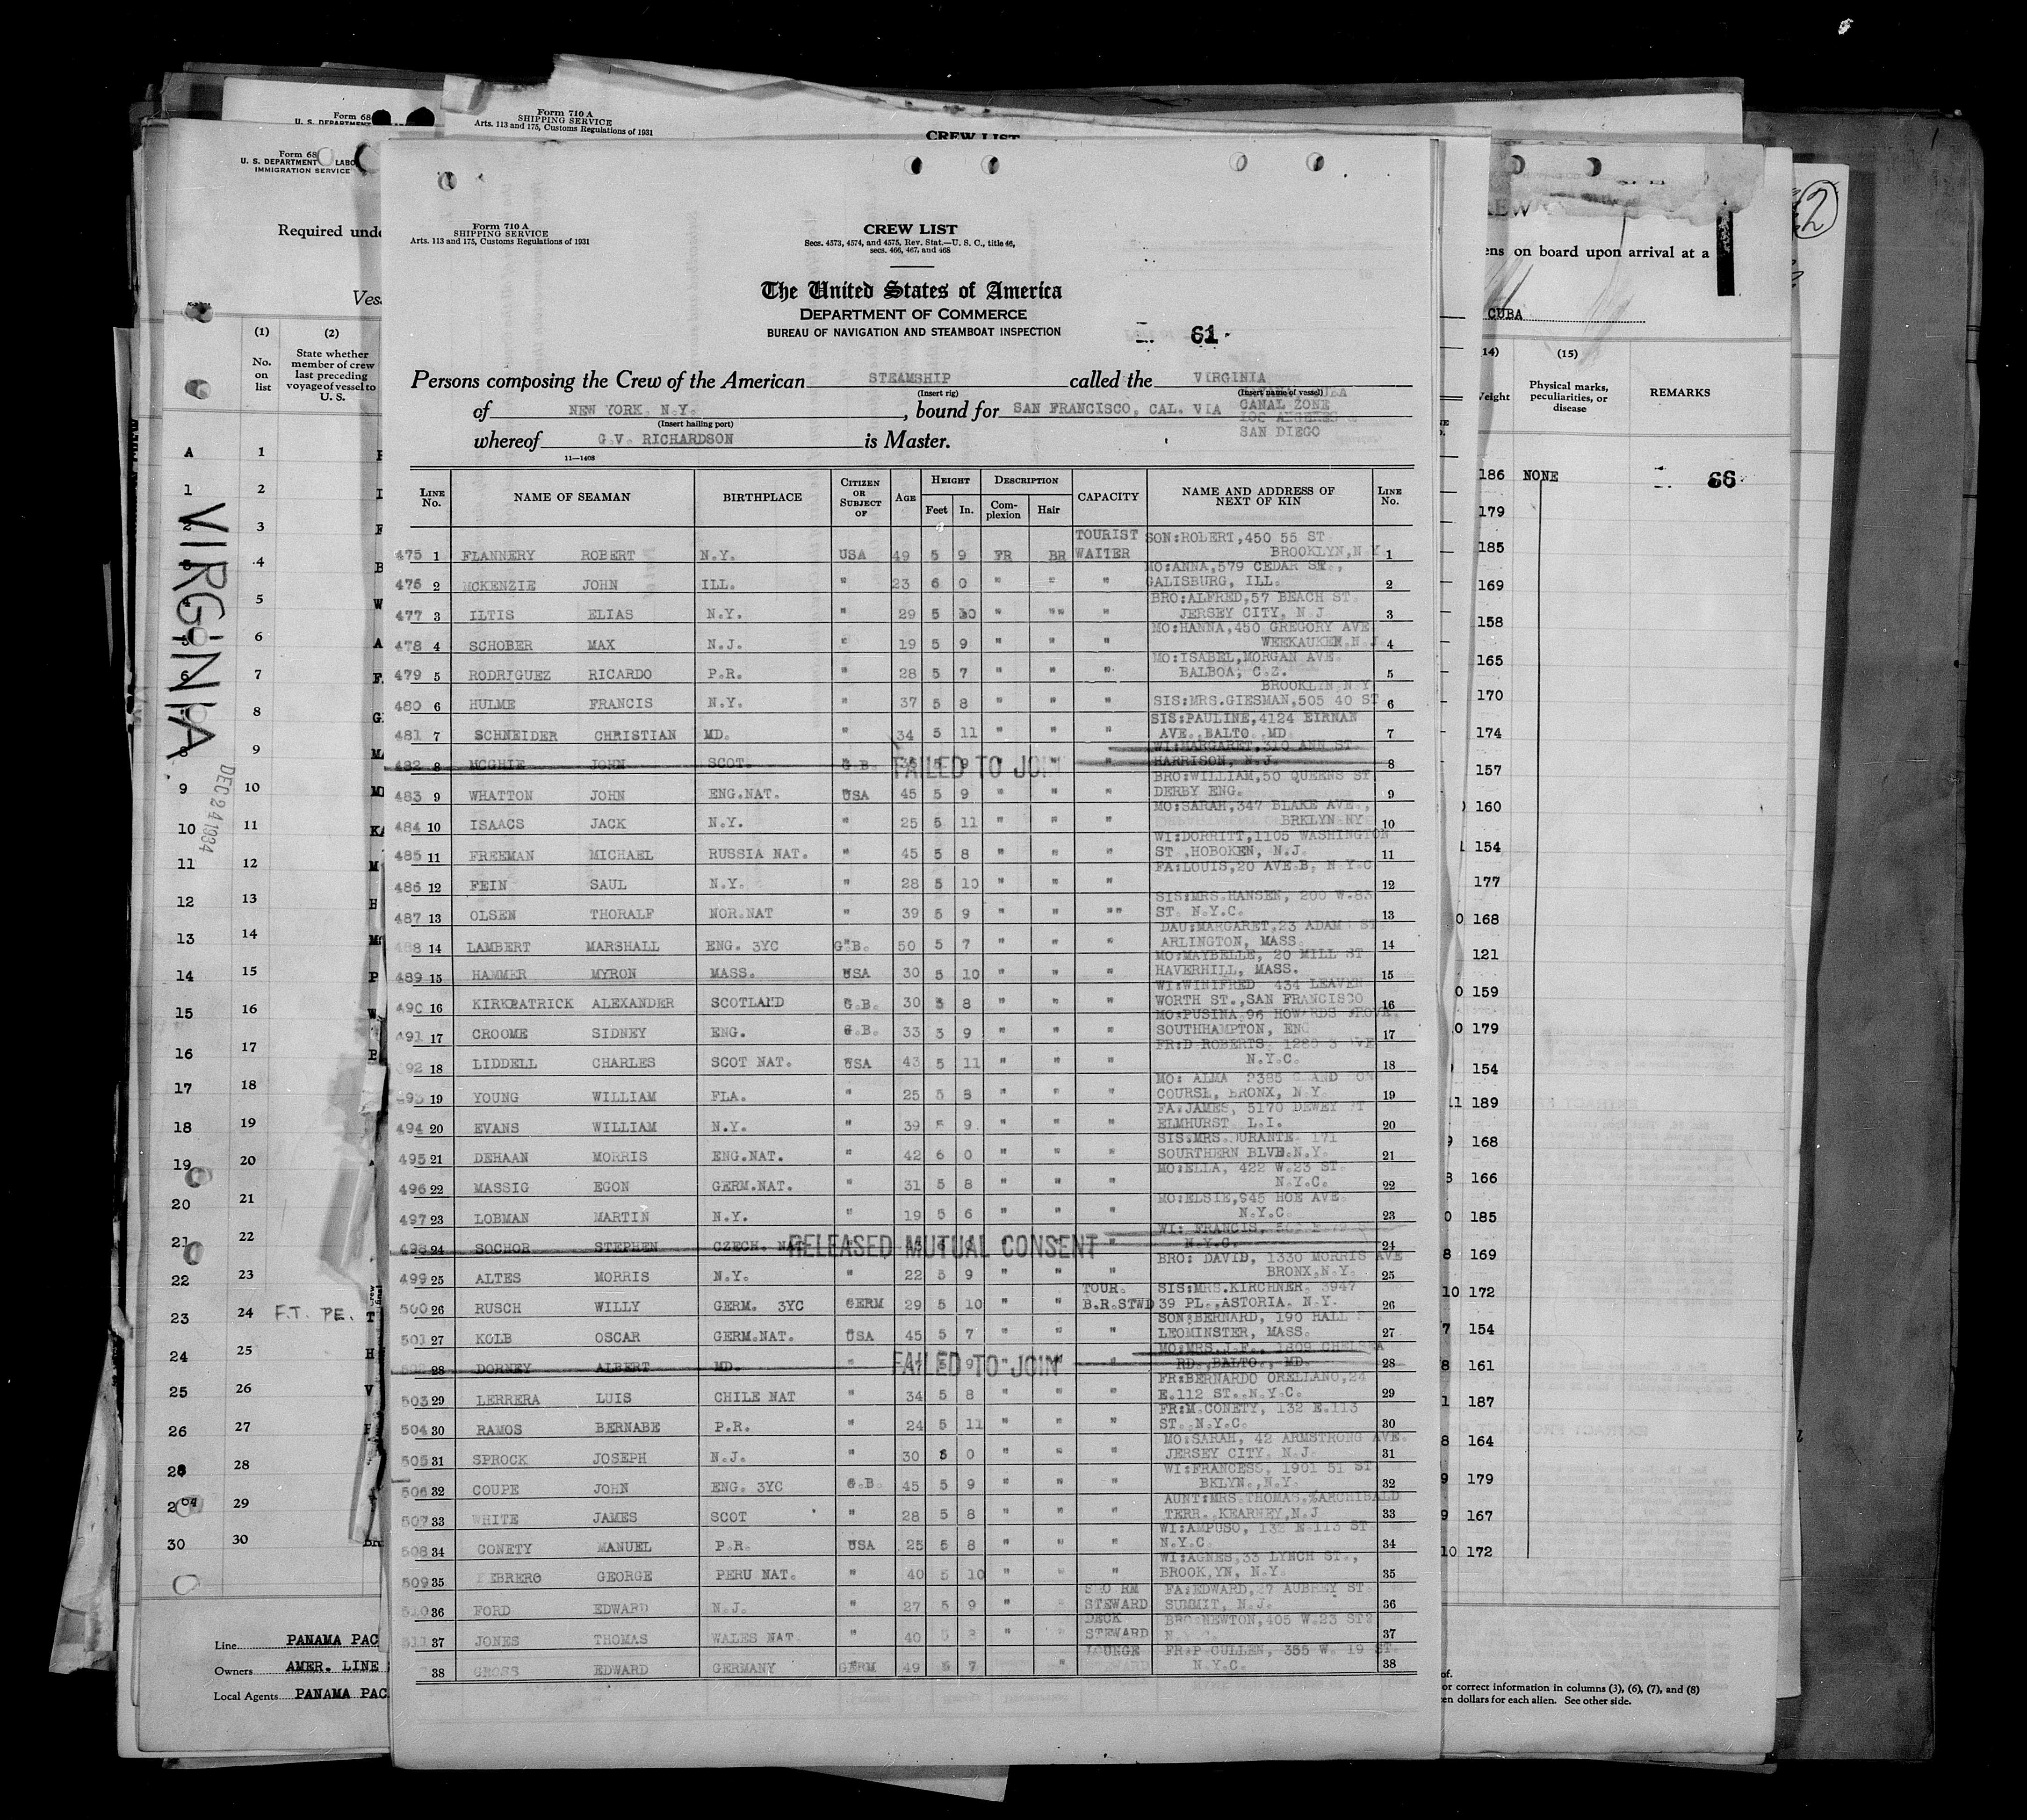 Form 68
U. S. DEPARTMENT
Form 710 A
SHIPPING SERVICE
Arts. 113 and 175, Customs Regulations of 1931
CREW LIST
Form 68
U. S. DEPARTMENT LABO
IMMIGRATION SERVICE
Required unde
Ves
(1) (2)
No. on list
State whether member of crew last preceding voyage of vessel to U. S.
VIRGINIA
DEC 24 1934
A 1
1 2
2 3
3 4
4 5
6
7
8
9
9 10
10 11
11 12
12 13
13 14
14 15
15 16
16 17
17 18
18 19
19 20
20 21
21 22
22 23
23 24 F.T. PE.
24 25
25 26
26 27
28
29
30 30
Line PANAMA PAC
Owners AMER. LINE
Local Agents PANAMA PAC
Form 710 A
SHIPPING SERVICE
Arts. 113 and 175, Customs Regulations of 1931
CREW LIST
Secs. 4573, 4574, and 4575, Rev. Stat.—U. S. C., title 46,
secs. 466, 467, and 468
The United States of America
DEPARTMENT OF COMMERCE
BUREAU OF NAVIGATION AND STEAMBOAT INSPECTION
61
Persons composing the Crew of the American STEAMSHIP called the VIRGINIA
(Insert rig) (Insert name of vessel)
of NEW YORK N.Y. , bound for SAN FRANCISCO, CAL. VIA CANAL ZONE
(Insert hailing port) LOS ANGELES
whereof G.V. RICHARDSON is Master. SAN DIEGO
11—1408
LINE No. NAME OF SEAMAN BIRTHPLACE CITIZEN OR SUBJECT OF AGE HEIGHT Feet In. DESCRIPTION Complexion Hair CAPACITY NAME AND ADDRESS OF NEXT OF KIN LINE No.
475 1 FLANNERY ROBERT N.Y. USA 49 5 9 FR BR TOURIST WAITER SON:ROLERT,450 55 ST BROOKLYN,N.Y 1
476 2 MCKENZIE JOHN ILL. " 23 6 0 " " " MO:ANNA,579 CEDAR ST., GALISBURG, ILL. 2
477 3 ILTIS ELIAS N.Y. " 29 5 10 " "" " BRO:ALFRED,57 BEACH ST. JERSEY CITY, N.J. 3
478 4 SCHOBER MAX N.J. " 19 5 9 " " " MO:HANNA,450 GREGORY AVE WEEKAUKEN,N.J 4
479 5 RODRIGUEZ RICARDO P.R. " 28 5 7 " " " MO:ISABEL,MORGAN AVE. BALBOA, C.Z. 5
480 6 HULME FRANCIS N.Y. " 37 5 8 " " " BROOKLYN N.Y. SIS:MRS.GIESMAN,505 40 ST 6
481 7 SCHNEIDER CHRISTIAN MD. " 34 5 11 " " " SIS:PAULINE,4124 EIRNAN AVE. BALTO. MD. 7
482 8 MCGHIE JOHN SCOT. G.B. FAILED TO JOIN WI:MARGARET,310 ANN ST HARRISON, N.J. 8
483 9 WHATTON JOHN ENG.NAT. USA 45 5 9 " " " BRO:WILLIAM,50 QUEENS ST. DERBY ENG. 9
484 10 ISAACS JACK N.Y. " 25 5 11 " " " MO:SARAH,347 BLAKE AVE., BRKLYN NY 10
485 11 FREEMAN MICHAEL RUSSIA NAT. " 45 5 8 " " " WI:DORRITT,1105 WASHINGTON ST.,HOBOKEN, N.J. 11
486 12 FEIN SAUL N.Y. " 28 5 10 " " " FA:LOUIS,20 AVE.B, N.Y.C 12
487 13 OLSEN THORALF NOR.NAT " 39 5 9 " " "" SIS:MRS.HANSEN, 200 W.83 ST. N.Y.C. 13
488 14 LAMBERT MARSHALL ENG. 3YC G.B. 50 5 7 " " " DAU:MARGARET,23 ADAM ST ARLINGTON, MASS. 14
489 15 HAMMER MYRON MASS. USA 30 5 10 " " " MO:MAYBELLE, 20 MILL ST HAVERHILL, MASS. 15
490 16 KIRKPATRICK ALEXANDER SCOTLAND G.B. 30 5 8 " " " WI:WINIFRED 434 LEAVEN WORTH ST.,SAN FRANCISCO 16
491 17 CROOME SIDNEY ENG. G.B. 33 5 9 " " " MO:PUSINA,96 HOWARDS GROVE, SOUTHHAMPTON, ENG 17
492 18 LIDDELL CHARLES SCOT NAT. USA 43 5 11 " " " FR:D ROBERTS, 1280 3 AVE N.Y.C. 18
493 19 YOUNG WILLIAM FLA. " 25 5 8 " " " MO: ALMA 2385 GRAND CON COURSE, BRONX, N.Y. 19
494 20 EVANS WILLIAM N.Y. " 39 5 9 " " " FA:JAMES, 5170 DEWEY ST ELMHURST L.I. 20
495 21 DEHAAN MORRIS ENG.NAT. " 42 6 0 " " " SIS:MRS.DURANTE. 171 SOURTHERN BLVD.N.Y. 21
496 22 MASSIG EGON GERM.NAT. " 31 5 8 " " " MO:ELLA, 422 W.23 ST. N.Y.C. 22
497 23 LOBMAN MARTIN N.Y. " 19 5 6 " " " MO:ELSIE,945 HOE AVE. N.Y.C. 23
498 24 SOCHOR STEPHEN CZECH. NAT RELEASED MUTUAL CONSENT WI: FRANCIS, N.Y.C. 24
499 25 ALTES MORRIS N.Y. " 22 5 9 " " " BRO: DAVID, 1330 MORRIS AVE BRONX,N.Y. 25
500 26 RUSCH WILLY GERM. 3YC GERM 29 5 10 " " TOUR. B.R.STWD SIS:MRS.KIRCHNER, 3947 39 PL.,ASTORIA. N.Y. 26
501 27 KOLB OSCAR GERM.NAT. USA 45 5 7 " " " SON:BERNARD, 190 HALL LEOMINSTER, MASS. 27
502 28 DORNEY ALBERT MD. " FAILED TO JOIN " MO:MRS.J.F., 1809 CHELSEA RD.,BALTO., MD. 28
503 29 LERRERA LUIS CHILE NAT " 34 5 8 " " " FR:BERNARDO ORELLANO,24 E.112 ST..N.Y.C. 29
504 30 RAMOS BERNABE P.R. " 24 5 11 " " " FR:M.CONETY, 132 E.113 ST. N.Y.C. 30
505 31 SPROCK JOSEPH N.J. " 30 6 0 " " " MO:SARAH, 42 ARMSTRONG AVE. JERSEY CITY, N.J. 31
506 32 COUPE JOHN ENG. 3YC G.B. 45 5 9 " " " WI:FRANCESS, 1901 51 ST BKLYN.,N.Y. 32
507 33 WHITE JAMES SCOT " 28 5 8 " " " AUNT:MRS.THOMAS,%ARCHIBALD TERR. KEARNEY,N.J 33
508 34 CONETY MANUEL P.R. USA 25 5 8 " " " WI:AMPUSO, 132 E.113 ST. N.Y.C. 34
509 35 EBRERO GEORGE PERU NAT. " 40 5 10 " " " WI:AGNES,33 LYNCH ST., BROOK,YN, N.Y. 35
510 36 FORD EDWARD N.J. " 27 5 9 " STEWARD FA:EDWARD,27 AUBREY ST. SUMMIT, N.J. 36
511 37 JONES THOMAS WALES NAT " 40 5 8 " DECK STEWARD BRO:NEWTON,405 W.23 ST 37
38 GROSS EDWARD GERMANY GERM 49 5 7 " LOUNGE FR:P.CULLEN, 355 W. 19 ST. N.Y.C. 38
2
ens on board upon arrival at a
CUBA
14) (15)
eight Physical marks, peculiarities, or disease REMARKS
186 NONE 66
179
185
169
158
165
170
174
157
160
154
177
168
121
159
179
154
11 189
168
166
185
169
10 172
154
161
187
164
179
167
10 172
of.
or correct information in columns (3), (6), (7), and (8)
en dollars for each alien. See other side.